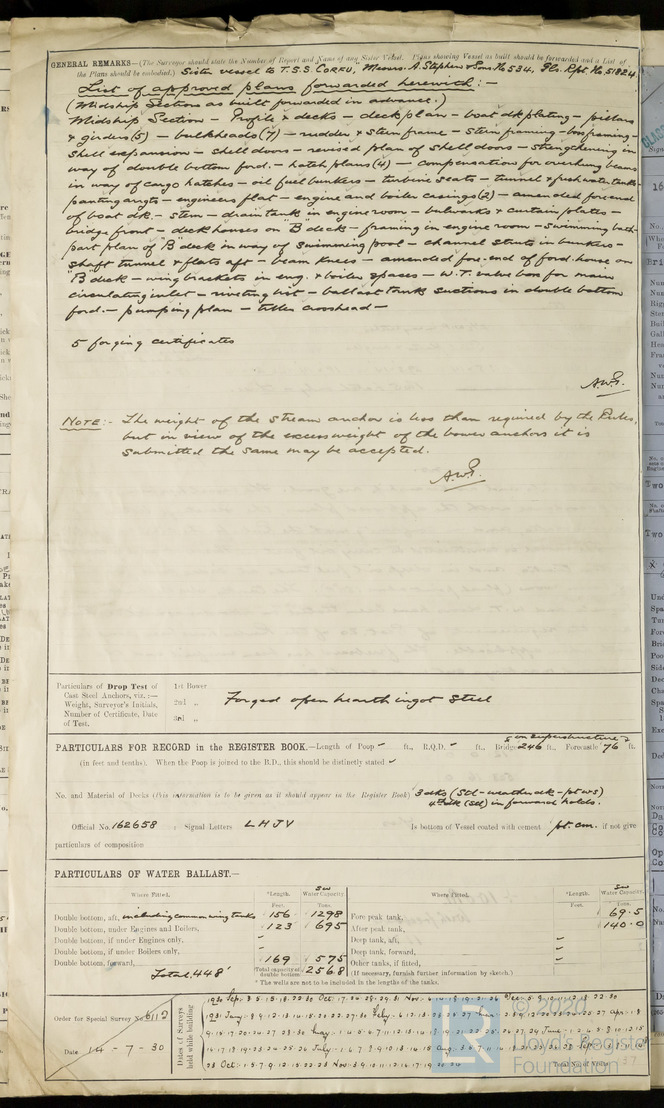 GENERAL REMARKS—(The Surveyor should state the Number of Report and Name of any Sister Vessel. Plans showing Vessel as built should be forwarded and a List of
the Plans should be embodied.) Sister vessel to T.S.S. "CORFU," Messrs. A Stephen & Sons No 534, Gls. Rpt. No 51824
List of approved plans forwarded herewith: -
(Midship Section as built forwarded in advance.)
Midship Section - Profile & decks - deck plan - boat dk plating - pillars
& girders (5) - bulkheads (7) - rudder & stern frame - stern framing - boss framing -
Shell expansion - shell doors - revised plan of shell doors - strengthening in
way of double bottom ford. - hatch plans (4) - compensation for overhung beams
in way of cargo hatches - oil fuel bunkers - turbine seats - tunnel & fresh water tanks -
panting arrgts - engineers flat - engine and boiler casings (2) - amended for end
of boat dk. - stem - drain tank in engine room - bulwarks & curtain plates -
bridge front - deckhouses on "B" deck - framing in engine room - swimming bath -
part plan of "B" deck in way of swimming pool - channel struts in bunkers -
Shaft tunnel & flats aft - beam knees - amended fore-end of ford. house on
"B" deck - wing brackets in eng. & boiler spaces - W.T. valve box for main
circulating inlet - riveting list - ballast tank suctions in double bottom
ford. - pumping plan - tiller crosshead -
5 forging certificates
NOTE: - The weight of the stream anchor is less than required by the Rules,
but in view of the excess weight of the bower anchors it is
submitted the same may be accepted.
Particulars of Drop Test of
Cast Steel Anchors, viz. :—
Weight, Surveyor's Initials,
Number of Certificate, Date
of Test.
1st Bower
2nd "
3rd "
Forged open hearth ingot steel
PARTICULARS FOR RECORD in the REGISTER BOOK.—Length of Poop - ft., R.Q.D. - ft., Bridge 246 ft., Forecastle 76 ft.
on superstructure
(in feet and tenths). When the Poop is joined to the B.D., this should be distinctly stated
No. and Material of Decks (this information is to be given as it should appear in the Register Book) 3 dks (Stl - weather dk - pt ws)
4th dk (Stl) in forward holds.
Official No. 162658 : Signal Letters L H J V Is bottom of Vessel coated with cement pt. cm. if not give
particulars of composition
PARTICULARS OF WATER BALLAST.—
Where Fitted. *Length. Water Capacity. Where Fitted. *Length. Water Capacity.
Feet. Tons. Feet. Tons.
Double bottom, aft, including common wing tanks 156 1298 Fore peak tank, 69.5
Double bottom, under Engines and Boilers, 123 695 After peak tank, 140.0
Double bottom, if under Engines only, - Deep tank, aft, -
Double bottom, if under Boilers only, - Deep tank, forward, -
Double bottom, forward, 169 575 Other tanks, if fitted, -
Total 448' Total capacity of double bottom 2568 (If necessary, furnish further information by sketch.)
* The wells are not to be included in the lengths of the tanks.
Order for Special Survey No. 6112
Date 14 - 7 - 30
Dates of Surveys
held while building
Total No. of Visits
© 2020
Lloyd's Register
Foundation